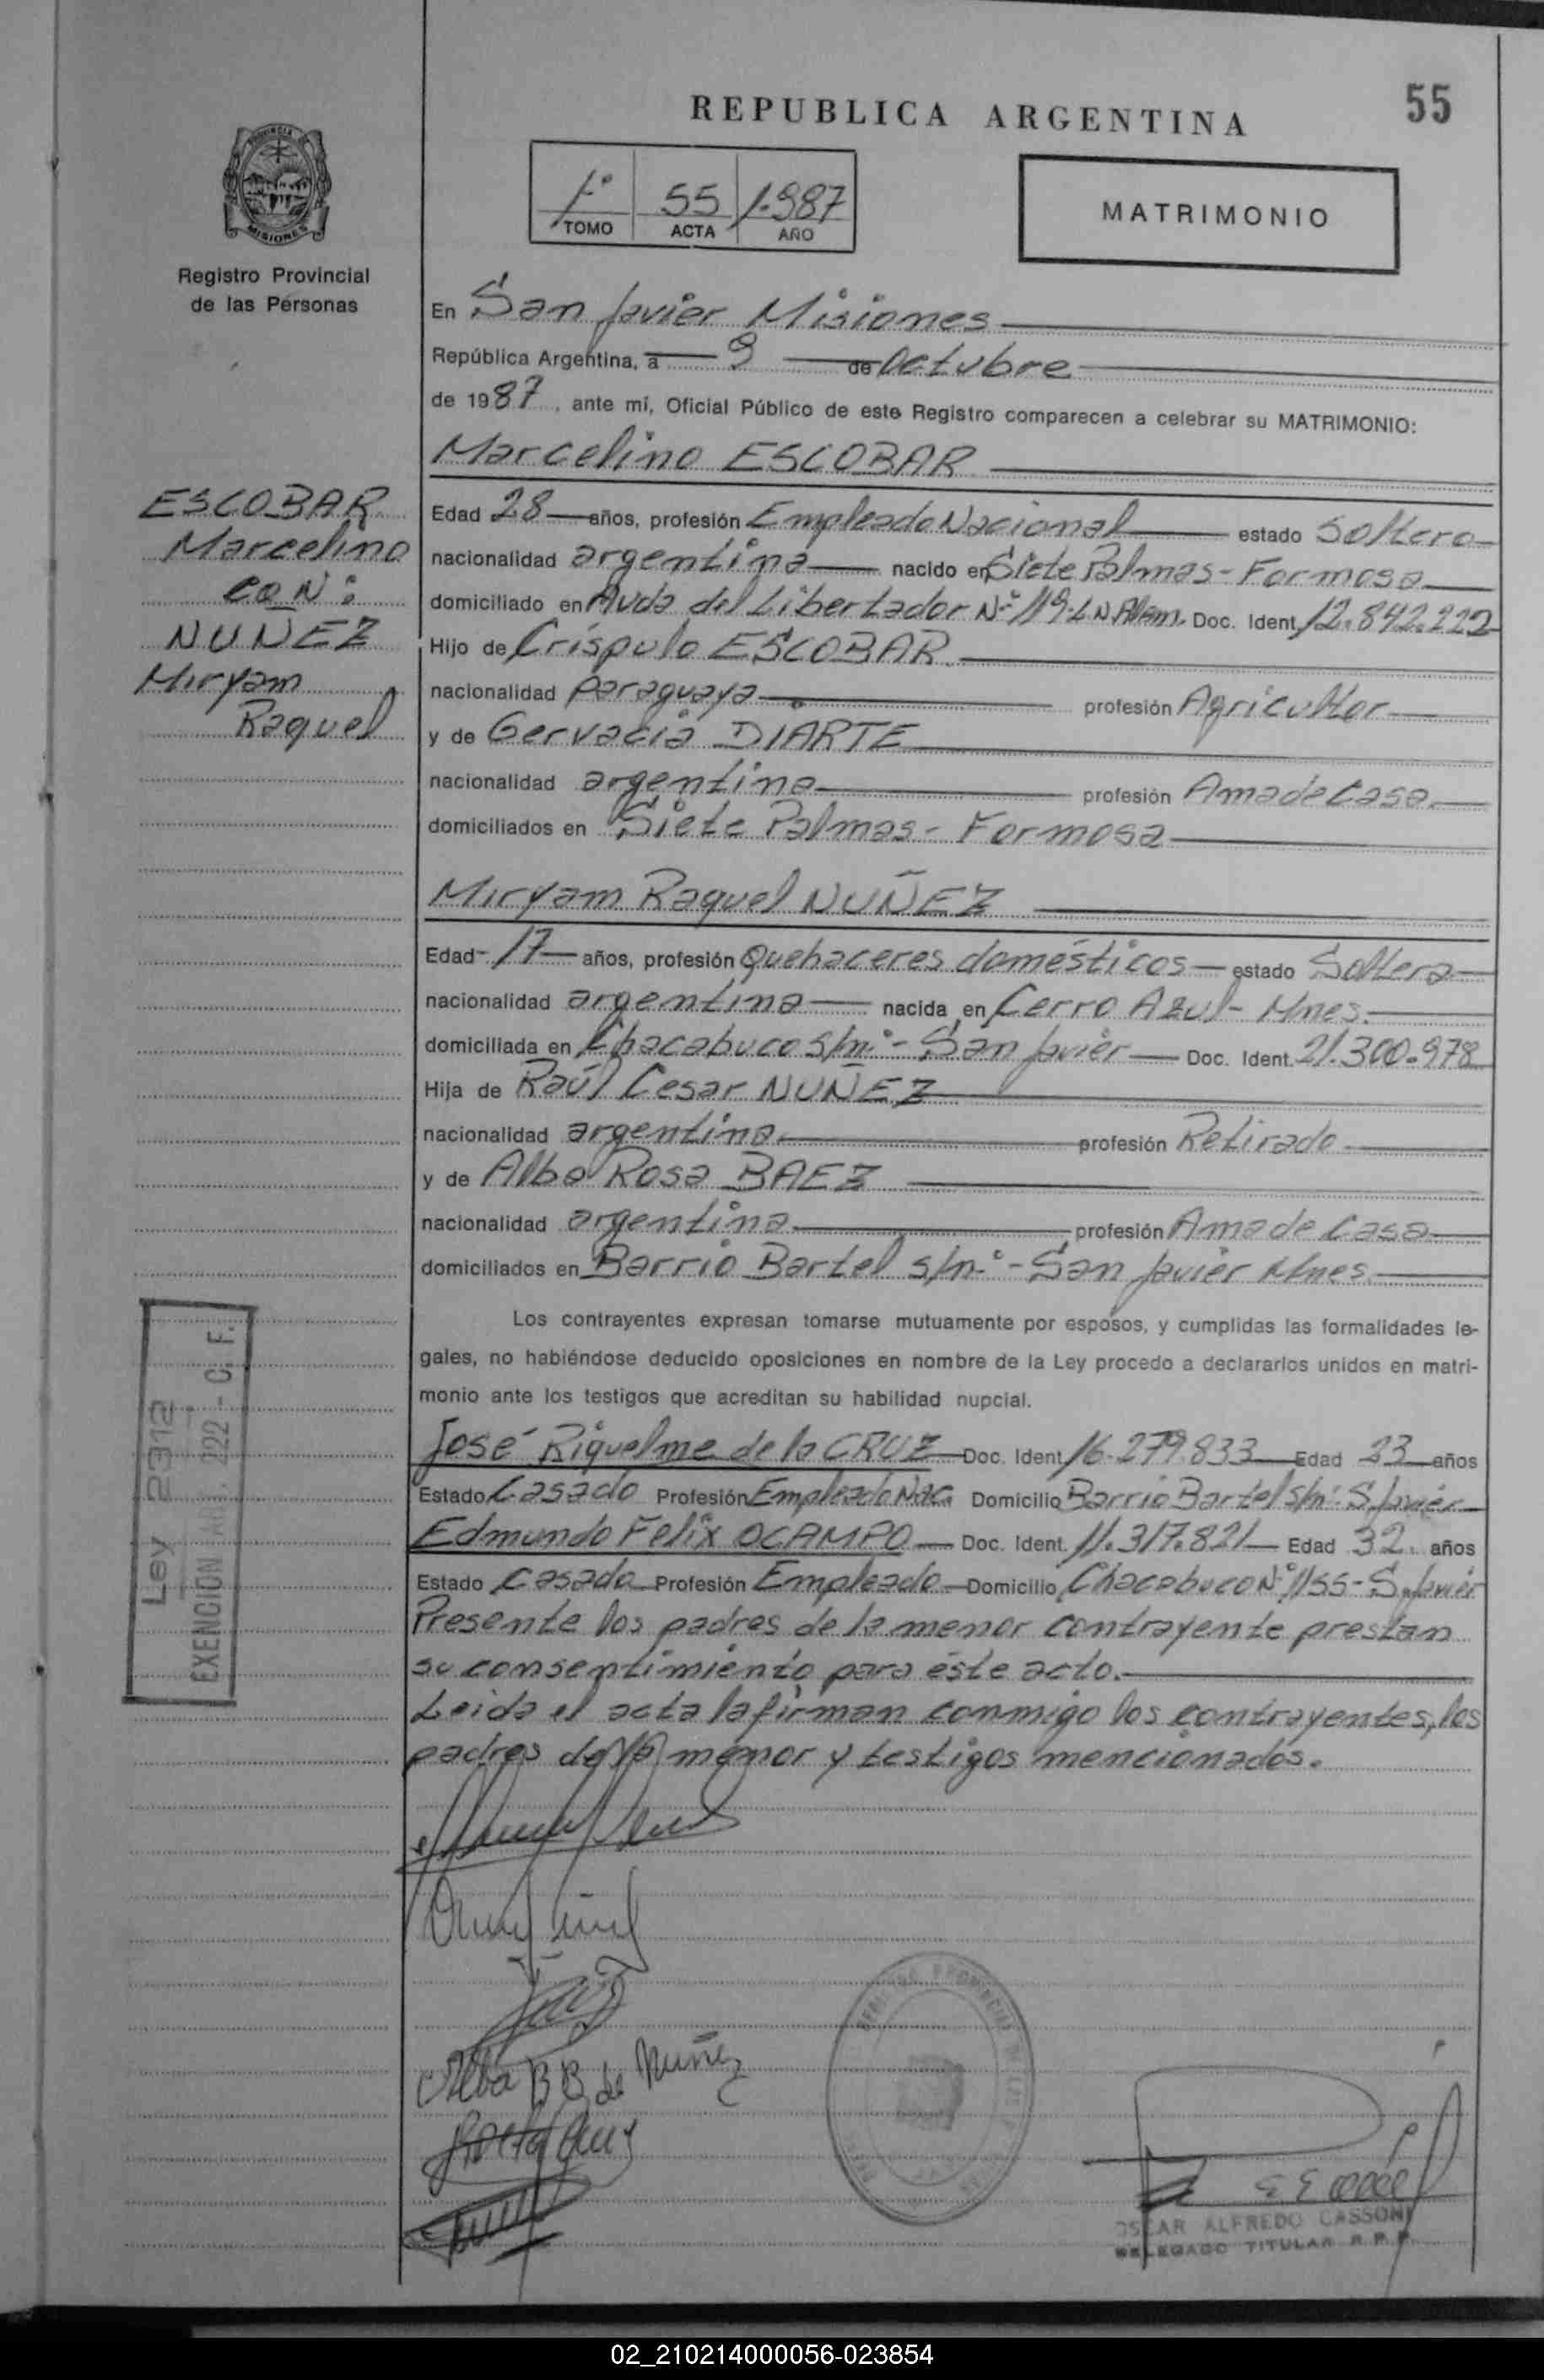 55
REPUBLICA ARGENTINA
1º 55 1.987
TOMO ACTA AÑO
MATRIMONIO
PROVINCIA
MISIONES
Registro Provincial
de las Personas
En San Javier Misiones
República Argentina, a 9 de Octubre
de 1987, ante mí, Oficial Público de este Registro comparecen a celebrar su MATRIMONIO:
Marcelino ESCOBAR
ESCOBAR
Marcelino
CON:
NUÑEZ
Miryam
Raquel
Edad 28 años, profesión Empleado Nacional estado Soltero
nacionalidad argentina nacido en Siete Palmas - Formosa
domiciliado en Avda del Libertador Nº 119-L N Alem. Doc. Ident. 12.842.222
Hijo de Críspulo ESCOBAR
nacionalidad paraguaya profesión Agricultor
y de Gervacia DIARTE
nacionalidad argentina profesión Ama de Casa
domiciliados en Siete Palmas - Formosa
Miryam Raquel NUÑEZ
Edad 17 años, profesión Quehaceres domésticos estado Soltera
nacionalidad argentina nacida en Cerro Azul - Mnes.
domiciliada en Chacabuco S/nº - San Javier Doc. Ident. 21.300.978
Hija de Raúl Cesar NUÑEZ
nacionalidad argentina profesión Retirado
y de Alba Rosa BAEZ
nacionalidad argentina profesión Ama de Casa
domiciliados en Barrio Bartel s/nº - San Javier Mnes.
Los contrayentes expresan tomarse mutuamente por esposos, y cumplidas las formalidades le-
gales, no habiéndose deducido oposiciones en nombre de la Ley procedo a declararlos unidos en matri-
monio ante los testigos que acreditan su habilidad nupcial.
José Riquelme de la CRUZ Doc. Ident. 16.279.833 Edad 23 años
Estado Casado Profesión Empleado Nac. Domicilio Barrio Bartel s/nº S. Javier
Edmundo Felix OCAMPO Doc. Ident. 11.317.821 Edad 32 años
Estado Casado Profesión Empleado Domicilio Chacabuco Nº 1155 - S. Javier
Presente los padres de la menor contrayente prestan
su consentimiento para éste acto.
Leida el acta la firman conmigo los contrayentes, los
padres de la menor y testigos mencionados.
Ley 2312
EXENCION ART. 222 - C. F.
Alba B B de Nuñez
OSCAR ALFREDO CASSONI
DELEGADO TITULAR R. P. P.
02_210214000056-023854